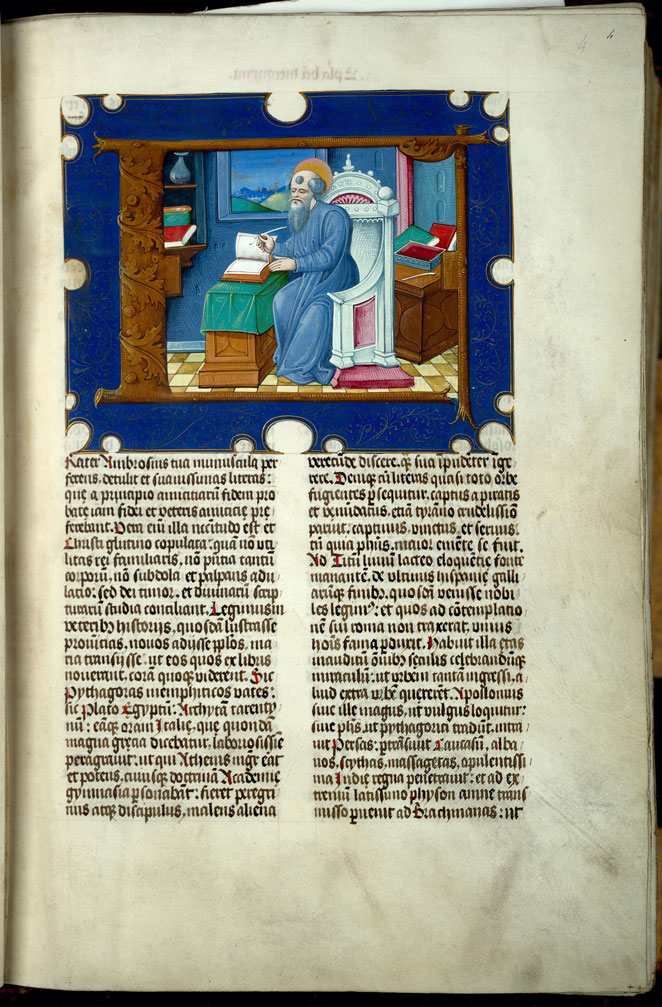 4
Rater Ambrosius tua munuscula per
ferens, detulit et suavissimas literas:
que a principio amicitiarū fidem pro
bate iam fidei et veteris amicitie pre
ferebant. Vera eni illa necitudo est et
Christi glutino copulata: quā nō uti
litas rei familiaris, nō pñtia tantū
corporū, nō subdola et palpans adu
latio: sed dei timor, et divinarū scrip
turarū studia conciliant. Legimus in
veteribꝰ historiis, quosdā lustrasse
provincias, novos adiisse pplos, ma
ria transiisse: ut eos quos ex libris
noverant, corā quoqꝫ viderent. Sic
Pythagoras memphiticos vates:
sic Plato Egyptū: Archytā tarenty
nū: eāqꝫ orā Italie, que quondā
magna grecia dicebatur, laboriosissie
peragravit: ut qui Athenis mgr̄ erat
et potens, cuiusqꝫ doctrinā Academie
gymnasia psonabāt: fieret peregri
nus atqꝫ discipulus, malens aliena
verecūde discere, qꝫ sua īpudēter ige
rere. Deniqꝫ cū literas quasi toto orbe
fugientes psequitur, captus a piratis
et venūdatus, etiā tyrāno crudelissimo
paruit, captivus, vinctus, et servus:
tñ quia phūs, maior emēte se fuit.
Ad Titū liviū lacteo eloquētie fonte
manantē, de ultimis hispanie galli
arūqꝫ finibꝰ, quosdā venisse nobi
les legimꝰ: et quos ad cōtemplatio
nē sui roma non traxerat, unius
hoīs fama pduxit. Habuit illa etas
inauditū omībꝰ seculis celebrandūqꝫ
miraculū: ut urbem tantā ingressi, a
liud extra urbē quererēt. Apollonius
sive ille magus, ut vulgus loquitur:
sive phūs, ut pythagorici tradūt, intra
vit Persas: ptransivit Caucasū, alba
nos, scythas, massagetas, opulentissi
ma Indie regna penetravit: et ad ex
tremū latissimo physon amne trans
misso pvenit ad Brachmanas: ut